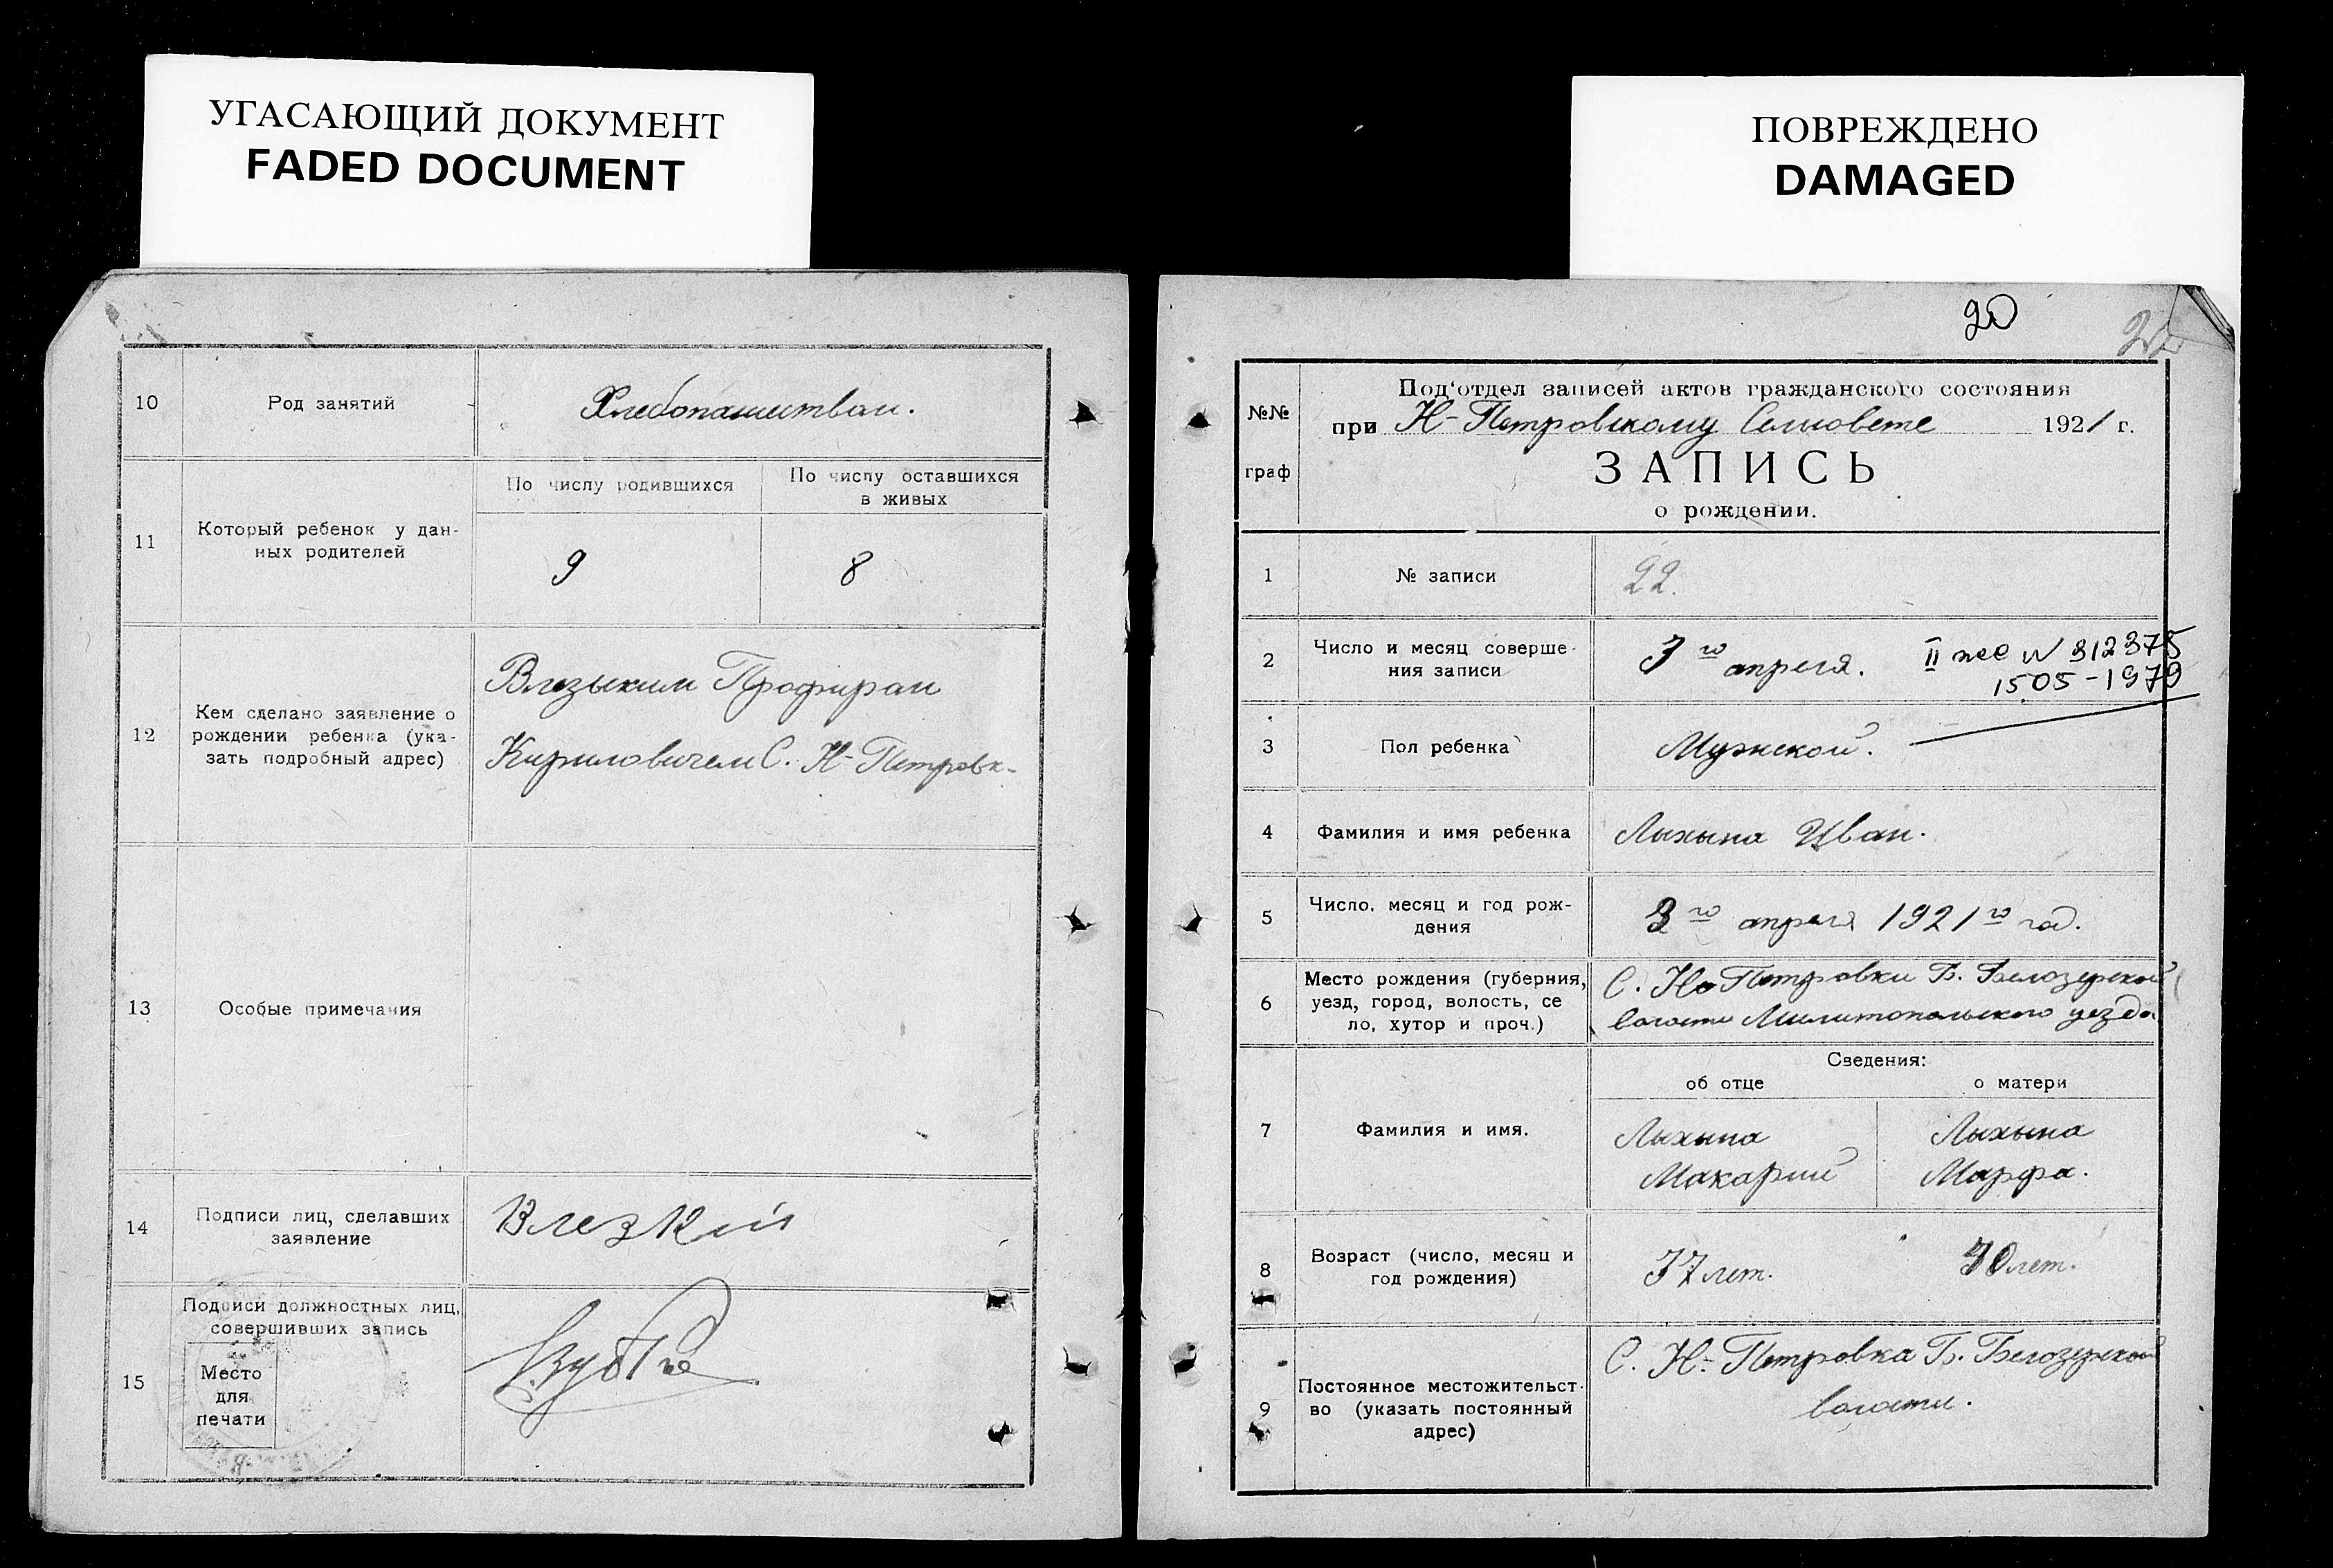 УГАСАЮЩИЙ ДОКУМЕНТ
FADED DOCUMENT
10
Род занятий
Хлебопашитвам.
11
Который ребенок у дан-
ных родителей
По числу родившихся
По числу оставшихся
в живых
9
8
12
Кем сделано заявление о
рождении ребенка (ука-
зать подробный адрес)
Влезьким
Кириловичем С. Н-Петровк-
13
Особые примечания
14
Подписи лиц, сделавших
заявление
Влезкий
15
Подписи должностных лиц,
совершивших запись
Место
для
печати
ПОВРЕЖДЕНО
DAMAGED
20
№№
граф
Под'отдел записей актов гражданского состояния
при Н-Петровскому Селсовете 1921 г.
ЗАПИСЬ
о рождении.
1
№ записи
22.
2
Число и месяц соверше-
ния записи
3го апреля.
II № 312375
1505-1979
3
Пол ребенка
Мужской.
4
Фамилия и имя ребенка
Лыхына Иван.
5
Число, месяц и год рож-
дения
3го апреля 1921го год.
6
Место рождения (губерния,
уезд, город, волость, се
ло, хутор и проч.)
С. Но Петровки Б. Белозерской
волости Милитопольского уезда
Сведения:
об отце
о матери
7
Фамилия и имя.
Лыхына
Макарий
Лыхына
Марфа.
8
Возраст (число, месяц и
год рождения)
37 лет.
30 лет.
9
Постоянное местожительст-
во (указать постоянный
адрес)
С. Н-Петровка Б. Белозерской
волости.